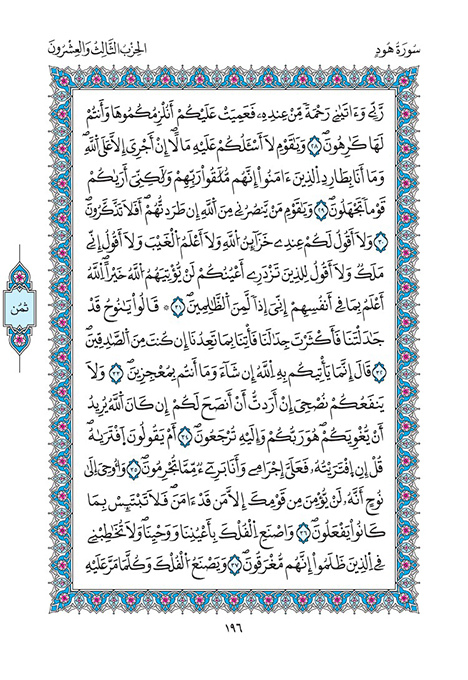 سُورَةُ هُودٍ
الحِزْبُ الثَّالِثُ وَالعِشْرُونَ
رَّبِّي وَءَاتَىٰنِي رَحْمَةً مِّنْ عِندِهِۦ فَعَمِيَتْ عَلَيْكُمُۥٓ أَنُلْزِمُكُمُوهَا وَأَنتُمْ
لَهَا كَٰرِهُونَ ٢٨ وَيَٰقَوْمِ لَآ أَسْـَٔلُكُمْ عَلَيْهِ مَالًا إِنْ أَجْرِيَ إِلَّا عَلَى اَ۬للَّهِ
وَمَآ أَنَا بِطَارِدِ اِ۬لذِينَ ءَامَنُوٓاْ إِنَّهُم مُّلَٰقُواْ رَبِّهِمْ وَلَٰكِنِّيَ أَر۪ىٰكُمْ
قَوْمًا تَجْهَلُونَ ٢٩ وَيَٰقَوْمِ مَنْ يَّنصُرُنِي مِنَ اَ۬للَّهِ إِن طَرَدتُّهُمُۥٓ أَفَلَا تَذَّكَّرُونَ
٣٠ وَلَآ أَقُولُ لَكُمْ عِندِي خَزَآئِنُ اُ۬للَّهِ وَلَآ أَعْلَمُ اُ۬لْغَيْبَ وَلَآ أَقُولُ إِنِّي
مَلَكٌ وَلَآ أَقُولُ لِلذِينَ تَزْدَرِيٓ أَعْيُنُكُمْ لَنْ يُّوتِيَهُمُ اُ۬للَّهُ خَيْرًا اِ۬للَّهُ
أَعْلَمُ بِمَا فِيٓ أَنفُسِهِمُۥٓ إِنِّيَ إِذًا لَّمِنَ اَ۬لظَّٰلِمِينَ ٣١ ۞ قَالُواْ يَٰنُوحُ قَدْ
جَٰدَلْتَنَا فَأَكْثَرْتَ جِدَٰلَنَا فَاتِنَا بِمَا تَعِدُنَآ إِن كُنتَ مِنَ اَ۬لصَّٰدِقِينَ
٣٢ قَالَ إِنَّمَا يَاتِيكُم بِهِ اِ۬للَّهُ إِن شَآءَ وَمَآ أَنتُم بِمُعْجِزِينَ ٣٣ وَلَا
يَنفَعُكُمْ نُصْحِيَ إِنْ أَرَدتُّ أَنْ أَنصَحَ لَكُمُۥٓ إِن كَانَ اَ۬للَّهُ يُرِيدُ
أَنْ يُّغْوِيَكُمْ هُوَ رَبُّكُمْ وَإِلَيْهِ تُرْجَعُونَ ٣٤ أَمْ يَقُولُونَ اَ۪فْتَر۪ىٰهُ
قُلْ إِنِ اِ۪فْتَرَيْتُهُۥ فَعَلَيَّ إِجْرَامِي وَأَنَا بَرِيٓءٌ مِّمَّا تُجْرِمُونَ ٣٥ وَأُوحِيَ إِلَىٰ
نُوحٍ أَنَّهُۥ لَنْ يُّومِنَ مِن قَوْمِكَ إِلَّا مَن قَدْ ءَامَنَ فَلَا تَبْتَئِسْ بِمَا
كَانُواْ يَفْعَلُونَ ٣٦ وَاصْنَعِ اِ۬لْفُلْكَ بِأَعْيُنِنَا وَوَحْيِنَا وَلَا تُخَٰطِبْنِي
فِي اِ۬لذِينَ ظَلَمُوٓاْ إِنَّهُم مُّغْرَقُونَ ٣٧ وَيَصْنَعُ اُ۬لْفُلْكَ وَكُلَّمَا مَرَّ عَلَيْهِ
ثُمُن
١٩٦